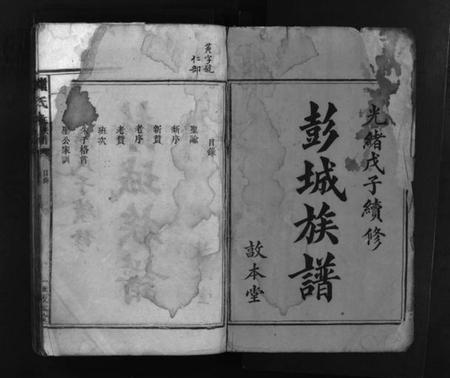 光緒戊子續修
彭城族譜
敦本堂
黃字號
仁部
目錄
聖諭
新序
新贊
老序
老贊
班次
朱子格言
公家訓
氏
目錄